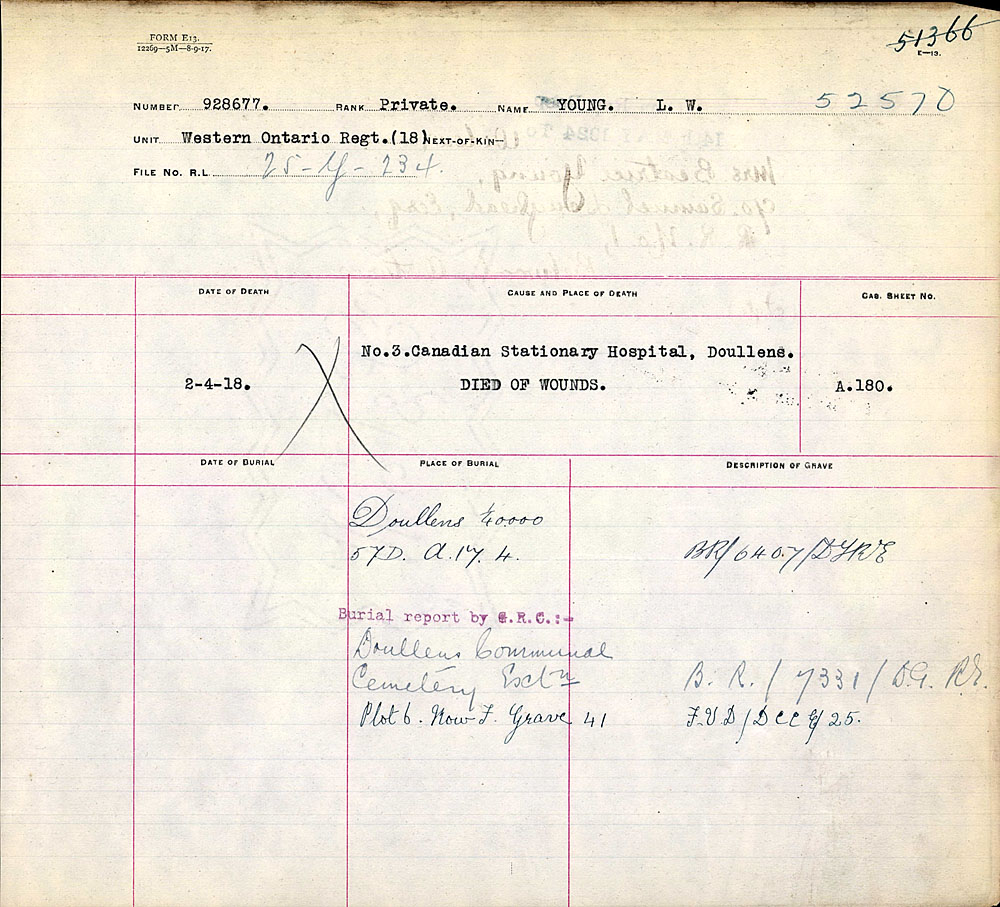 FORM E13.
12269—5M—8-9-17.
51366
E—13.
NUMBER 928677. RANK Private. NAME YOUNG. L. W. 52570
UNIT Western Ontario Regt.(18) NEXT-OF-KIN—
FILE No. R.L. 25-Y-234.
DATE OF DEATH CAUSE AND PLACE OF DEATH CAS. SHEET NO.
No.3.Canadian Stationary Hospital, Doullens.
2-4-18. DIED OF WOUNDS. A.180.
DATE OF BURIAL PLACE OF BURIAL DESCRIPTION OF GRAVE
Doullens 40000
57D. A.17. 4. BR/6407/DGR&E
Burial report by G.R.C.:-
Doullens Communal
Cemetery Extn B. R. / 7331 / D.G. R.E.
Plot 6. Row F. Grave 41 F.V.D/DCCE/25.